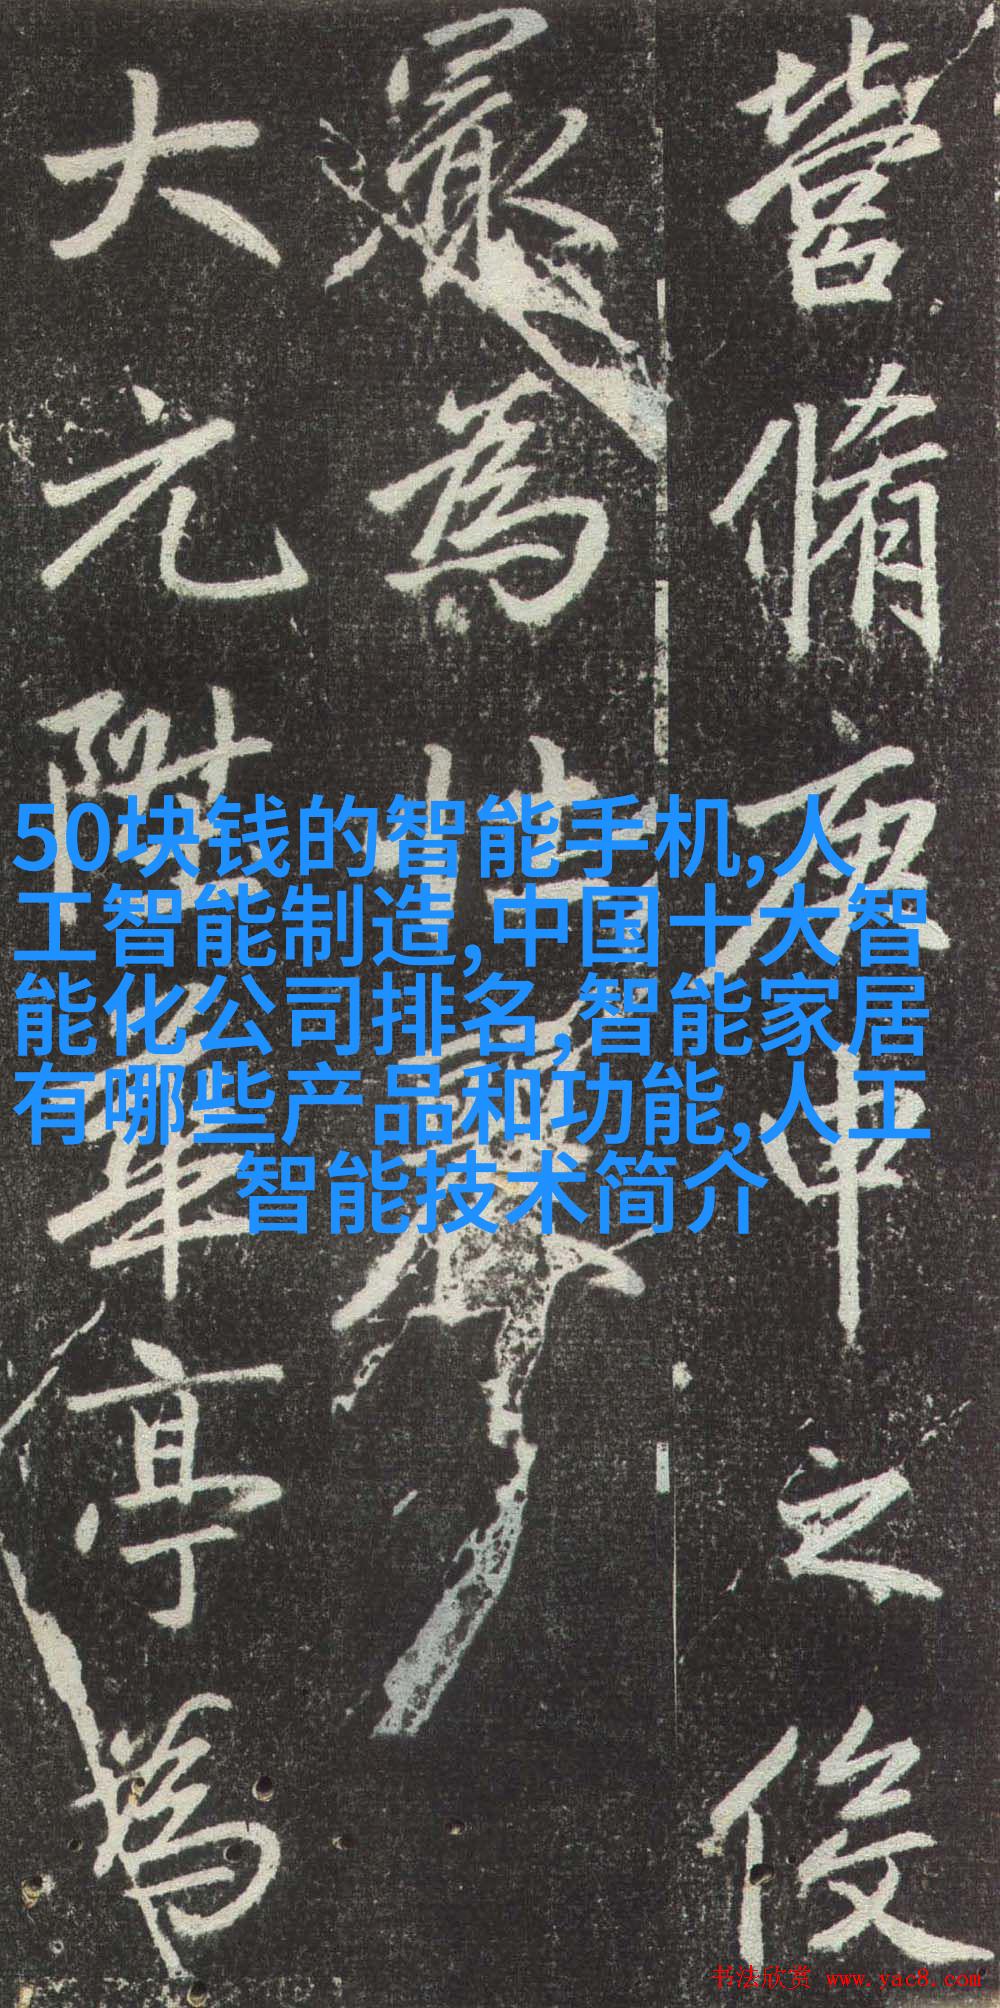 營脩庚申之
為
大元階亭為
50块钱的智能手机,人
工智能制造,中国十大智
能化公司排名,智能家居
有哪些产品和功能,人工
智能技术简介
书法欣赏 www.yac8.com